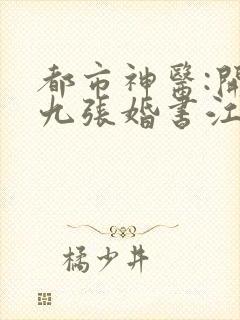 都市神醫:開
九張婚書江
橘少井